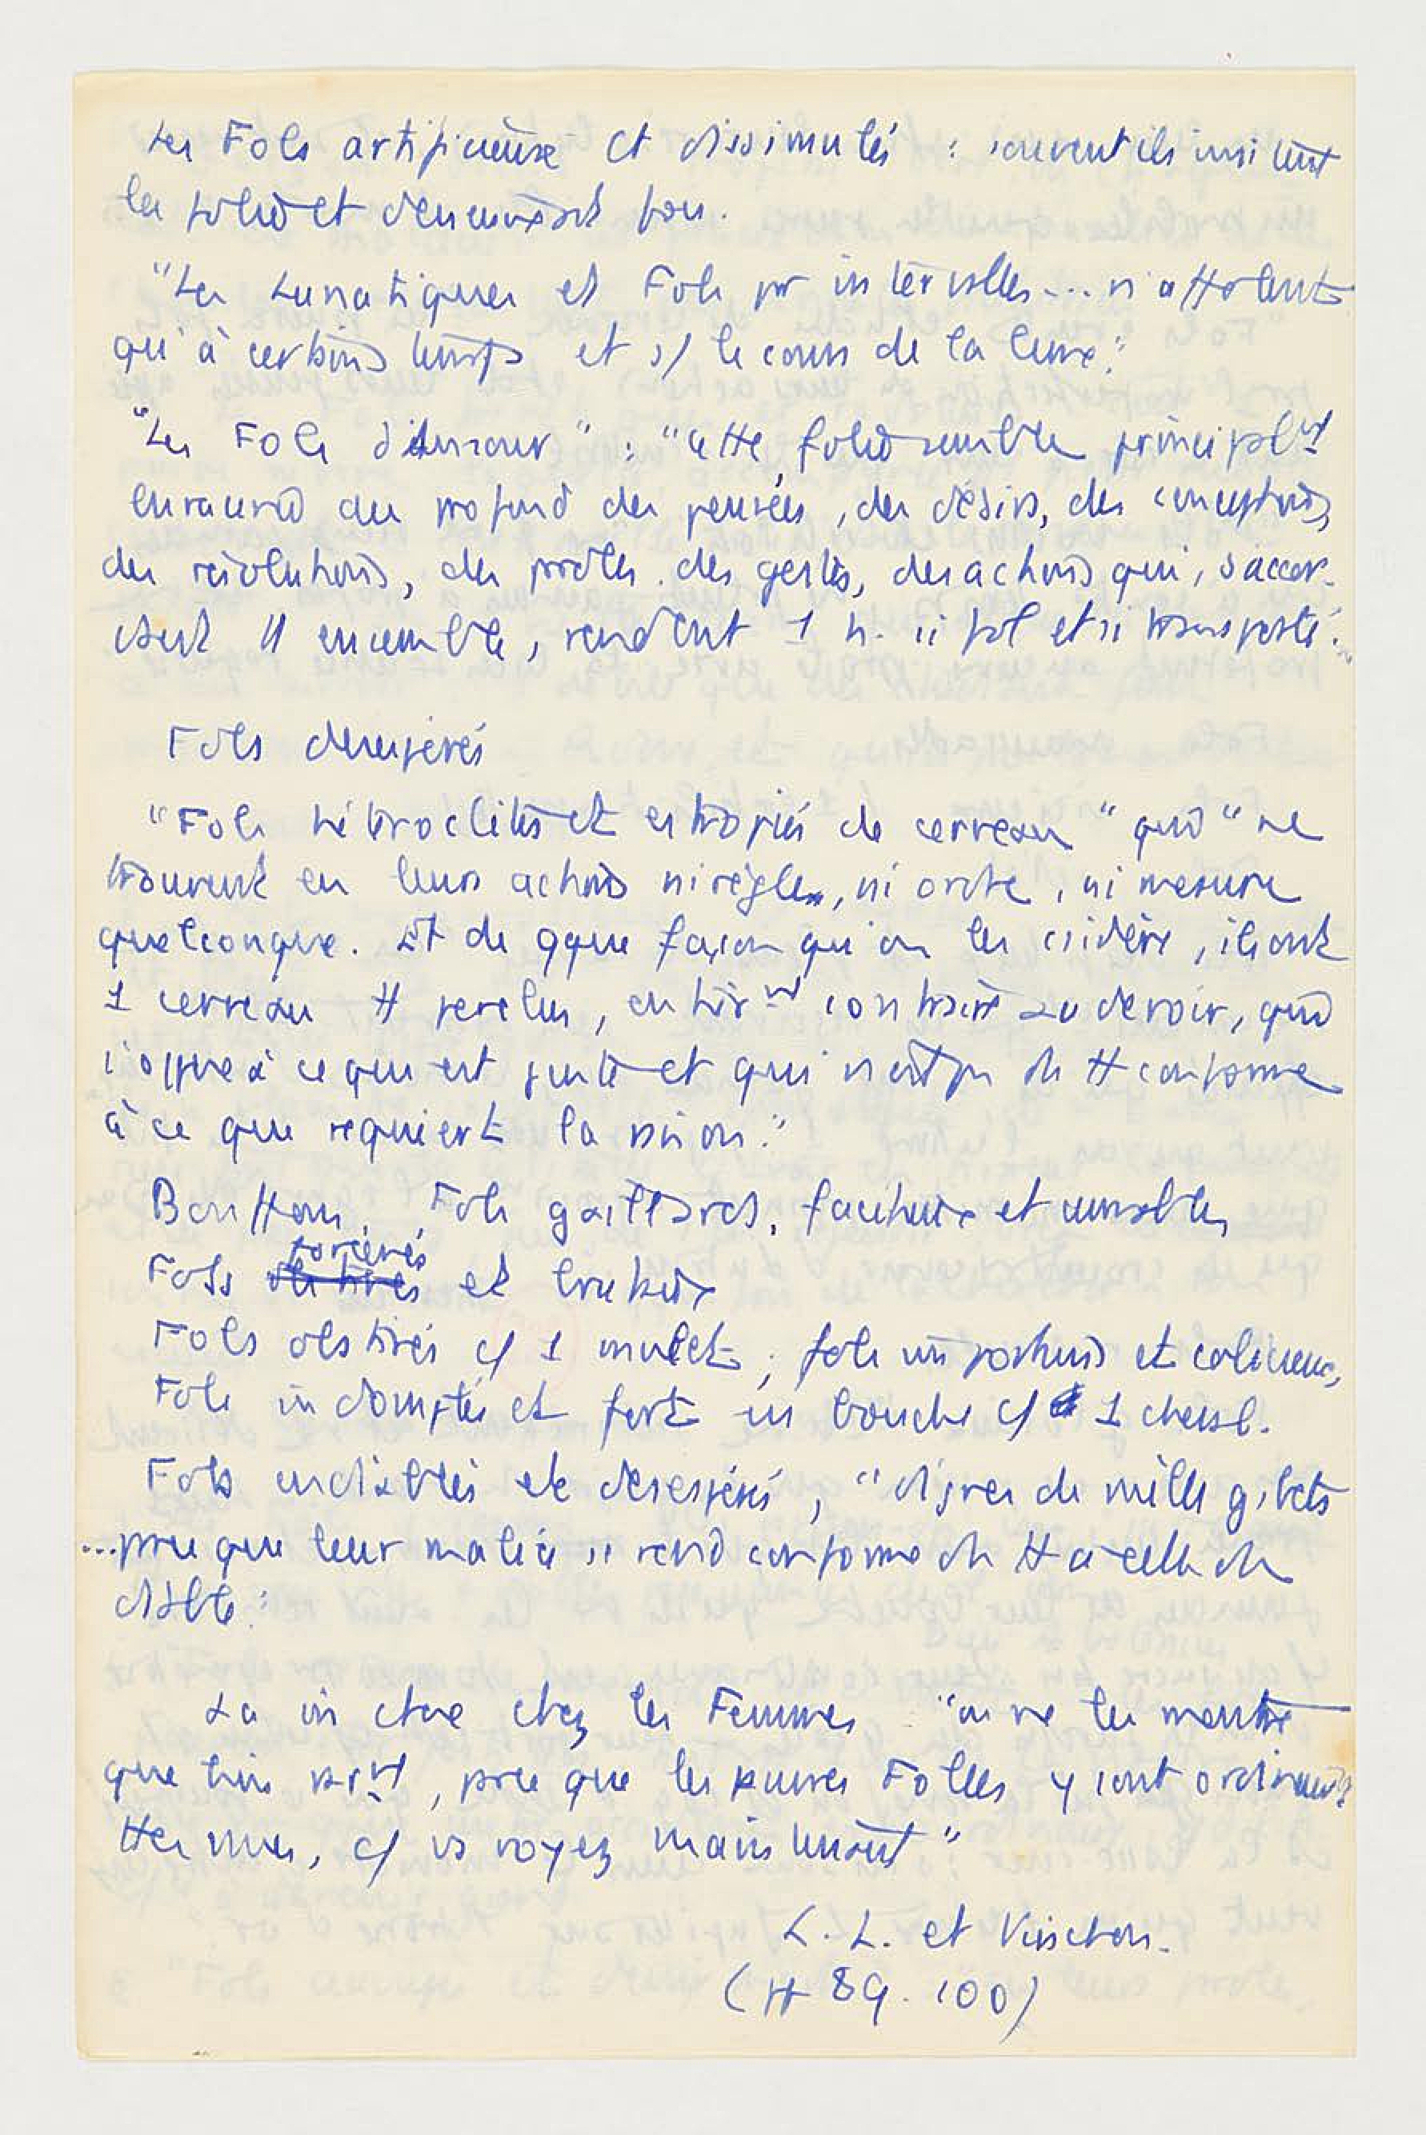 Les Fols artificieux et dissimulés : souvent ils imitent
la folie et demeurent fous.
"Les Lunatiques et Fols par intervalles... n'affolent
qu'à certains temps et s/ le cours de la lune."
"Les Fols d'Amour" : "Cette folie semble principlmt
enracinée au profond des pensées, des désirs, des conceptions,
des résolutions, des proles. des gestes, des actions qui, s'accor-
dant tt ensemble, rendent 1 h. si fol et si transporté."
Fols désespérés
"Fols hétéroclites et estropiés de cerveau" qui "ne
trouvent en leurs actions ni règle, ni ordre, ni mesure
quelconque. Et de qque façon qu'on les csidère, ils ont
1 cerveau tt perclus, entièrmt contraire au devoir, qui
s'oppose à ce qui est juste et qui n'est pas du tt conforme
à ce que requiert la raison."
Bouffons, Fols gaillards, facétieux et aimables
Fols forcenés et brutaux
Fols obstinés c/ 1 mulet,
Fols indomptés et forts en bouche c/ 1 cheval.
Fols endiablés et désespérés, "dignes de mille gibets
...pce que leur malice se rend conforme du tt à celle du
diable."
La chez les Femmes "on ne les montre
que très rarmt, pce que les pauvres Folles y sont ordinairmt
ttes nues, c/ vs voyez maintenant"
L. L. et Vinchon.
(p 89. 100)